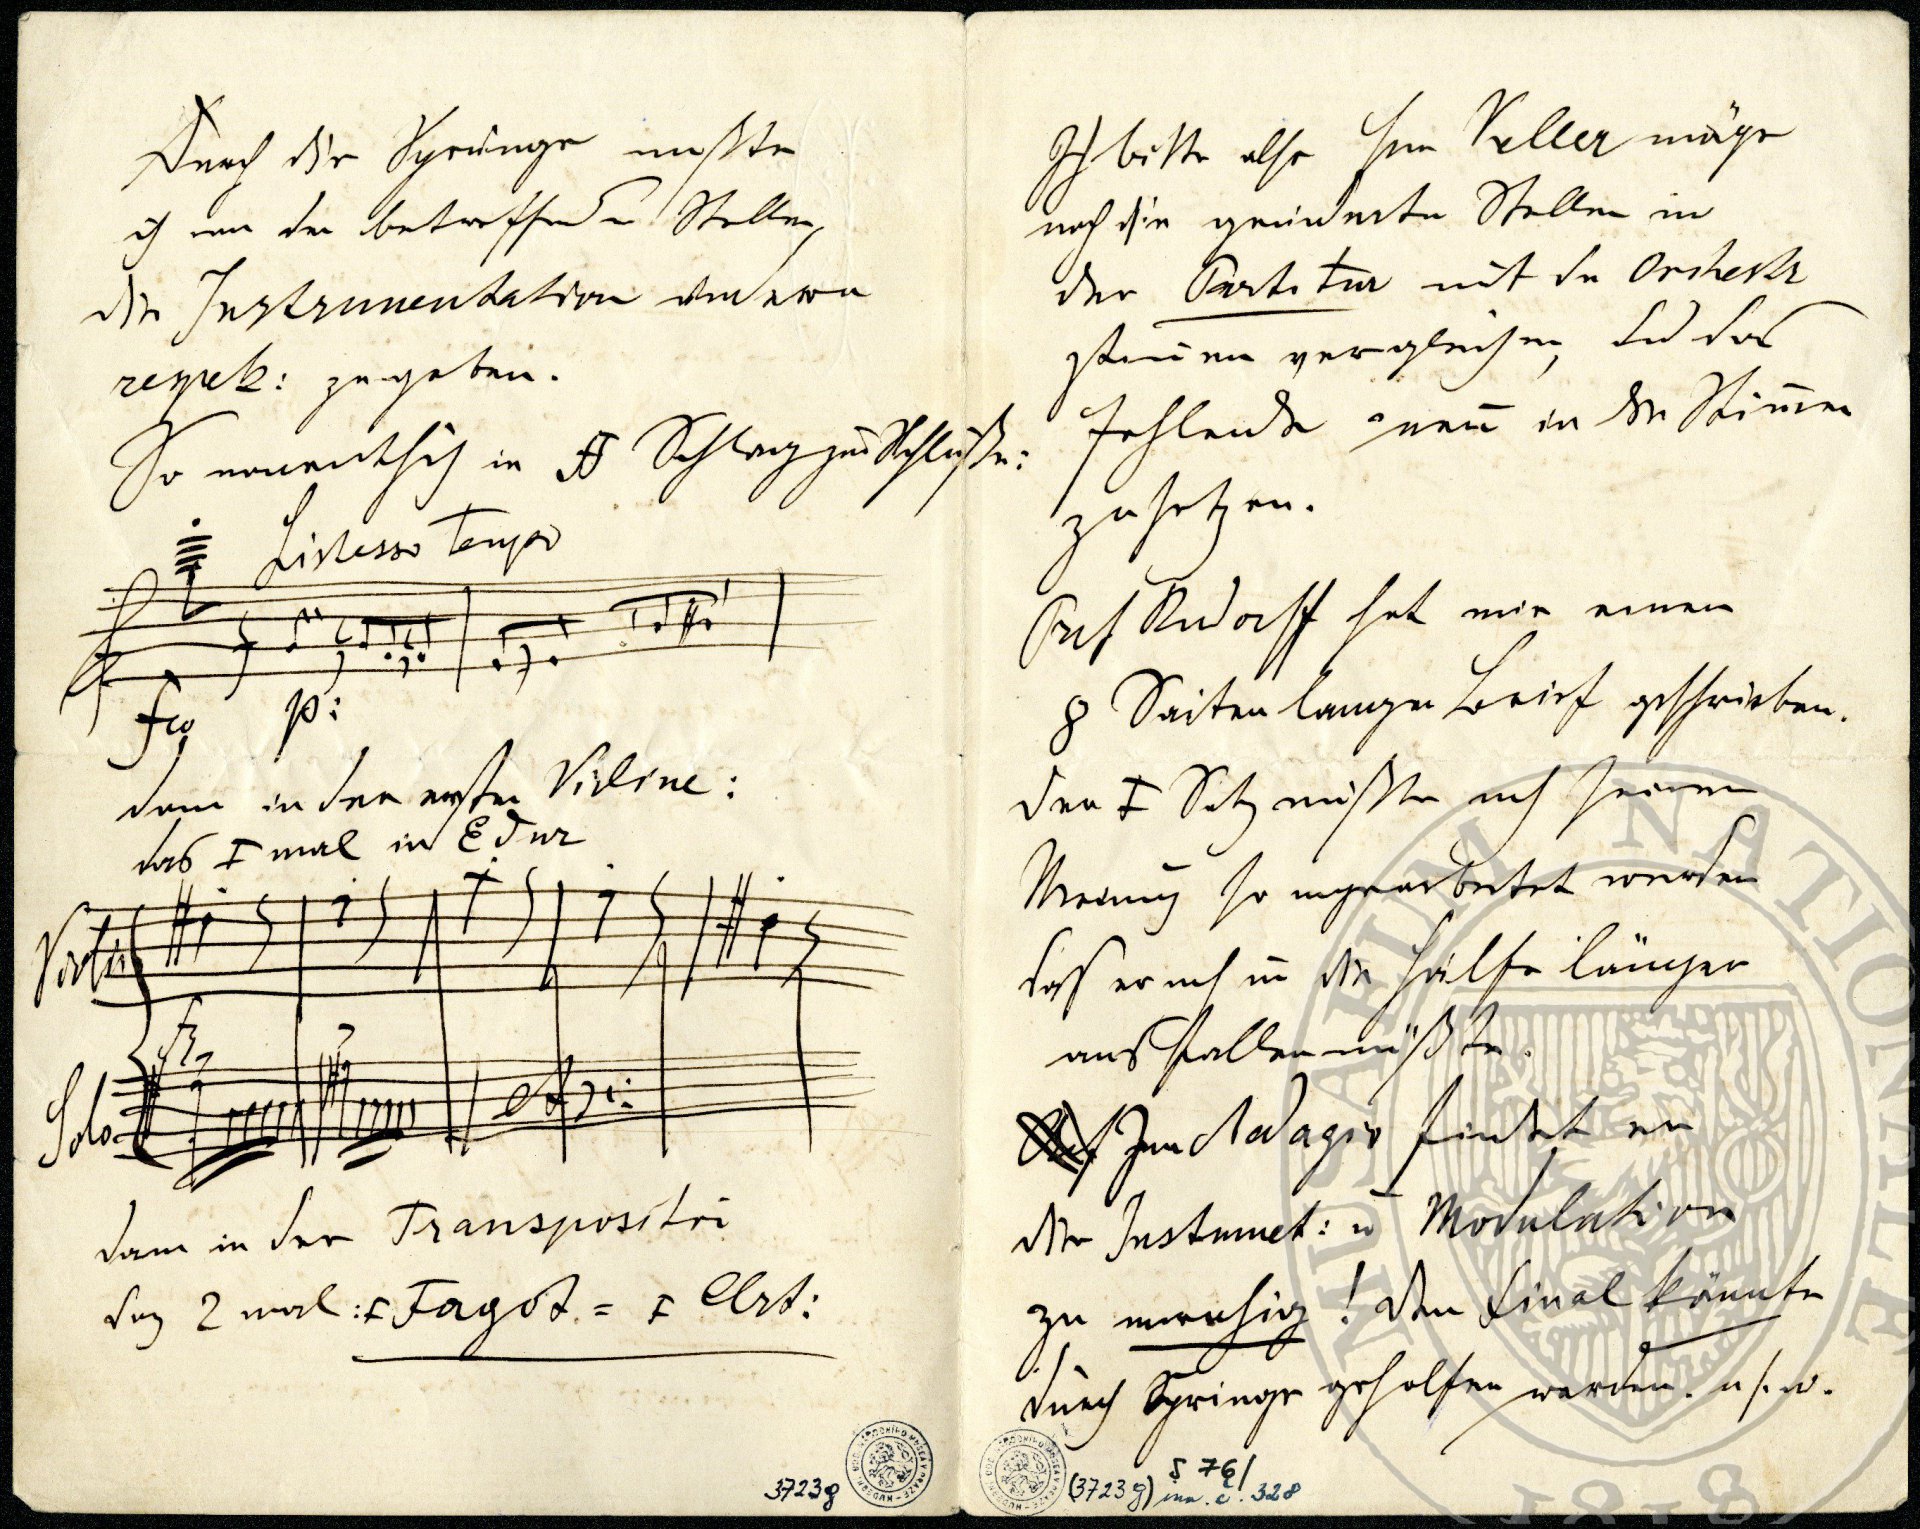 Durch die Sprünge mußte
ich an den betreffenden Stellen,
die Instrumentation anderen
respek: zugeben.
So namentlich in Schlag zum Schluße:
L'istesso Tempo
p:
dann in der ersten Violine:
das I mal in E dur
Solo
etc:
dann in der Transpositi
das 2 mal: I Fagot = I Clrt:
3723g
Ich bitte also Hrn Keller möge
noch die geänderten Stellen in
der Partitur mit den Orchestr
stimmen vergleichen, und das
fehlende in den Stimmen
zusetzen.
Prof Rudorff hat mir einen
8 Seiten langen Brief geschrieben.
Der I Satz müßte nach seiner
Meinung so umgearbeitet werden
daß er noch um die Hälfte länger
ausfallen müßte.
Im Adagio findet er
die Instrumet: u Modulation
zu unruhig! Den Final könnte
durch Sprünge geholfen werden. u.s.w.
(3723g) S 76/
inv. č. 328
MUSAEUM NATIONALE
1818